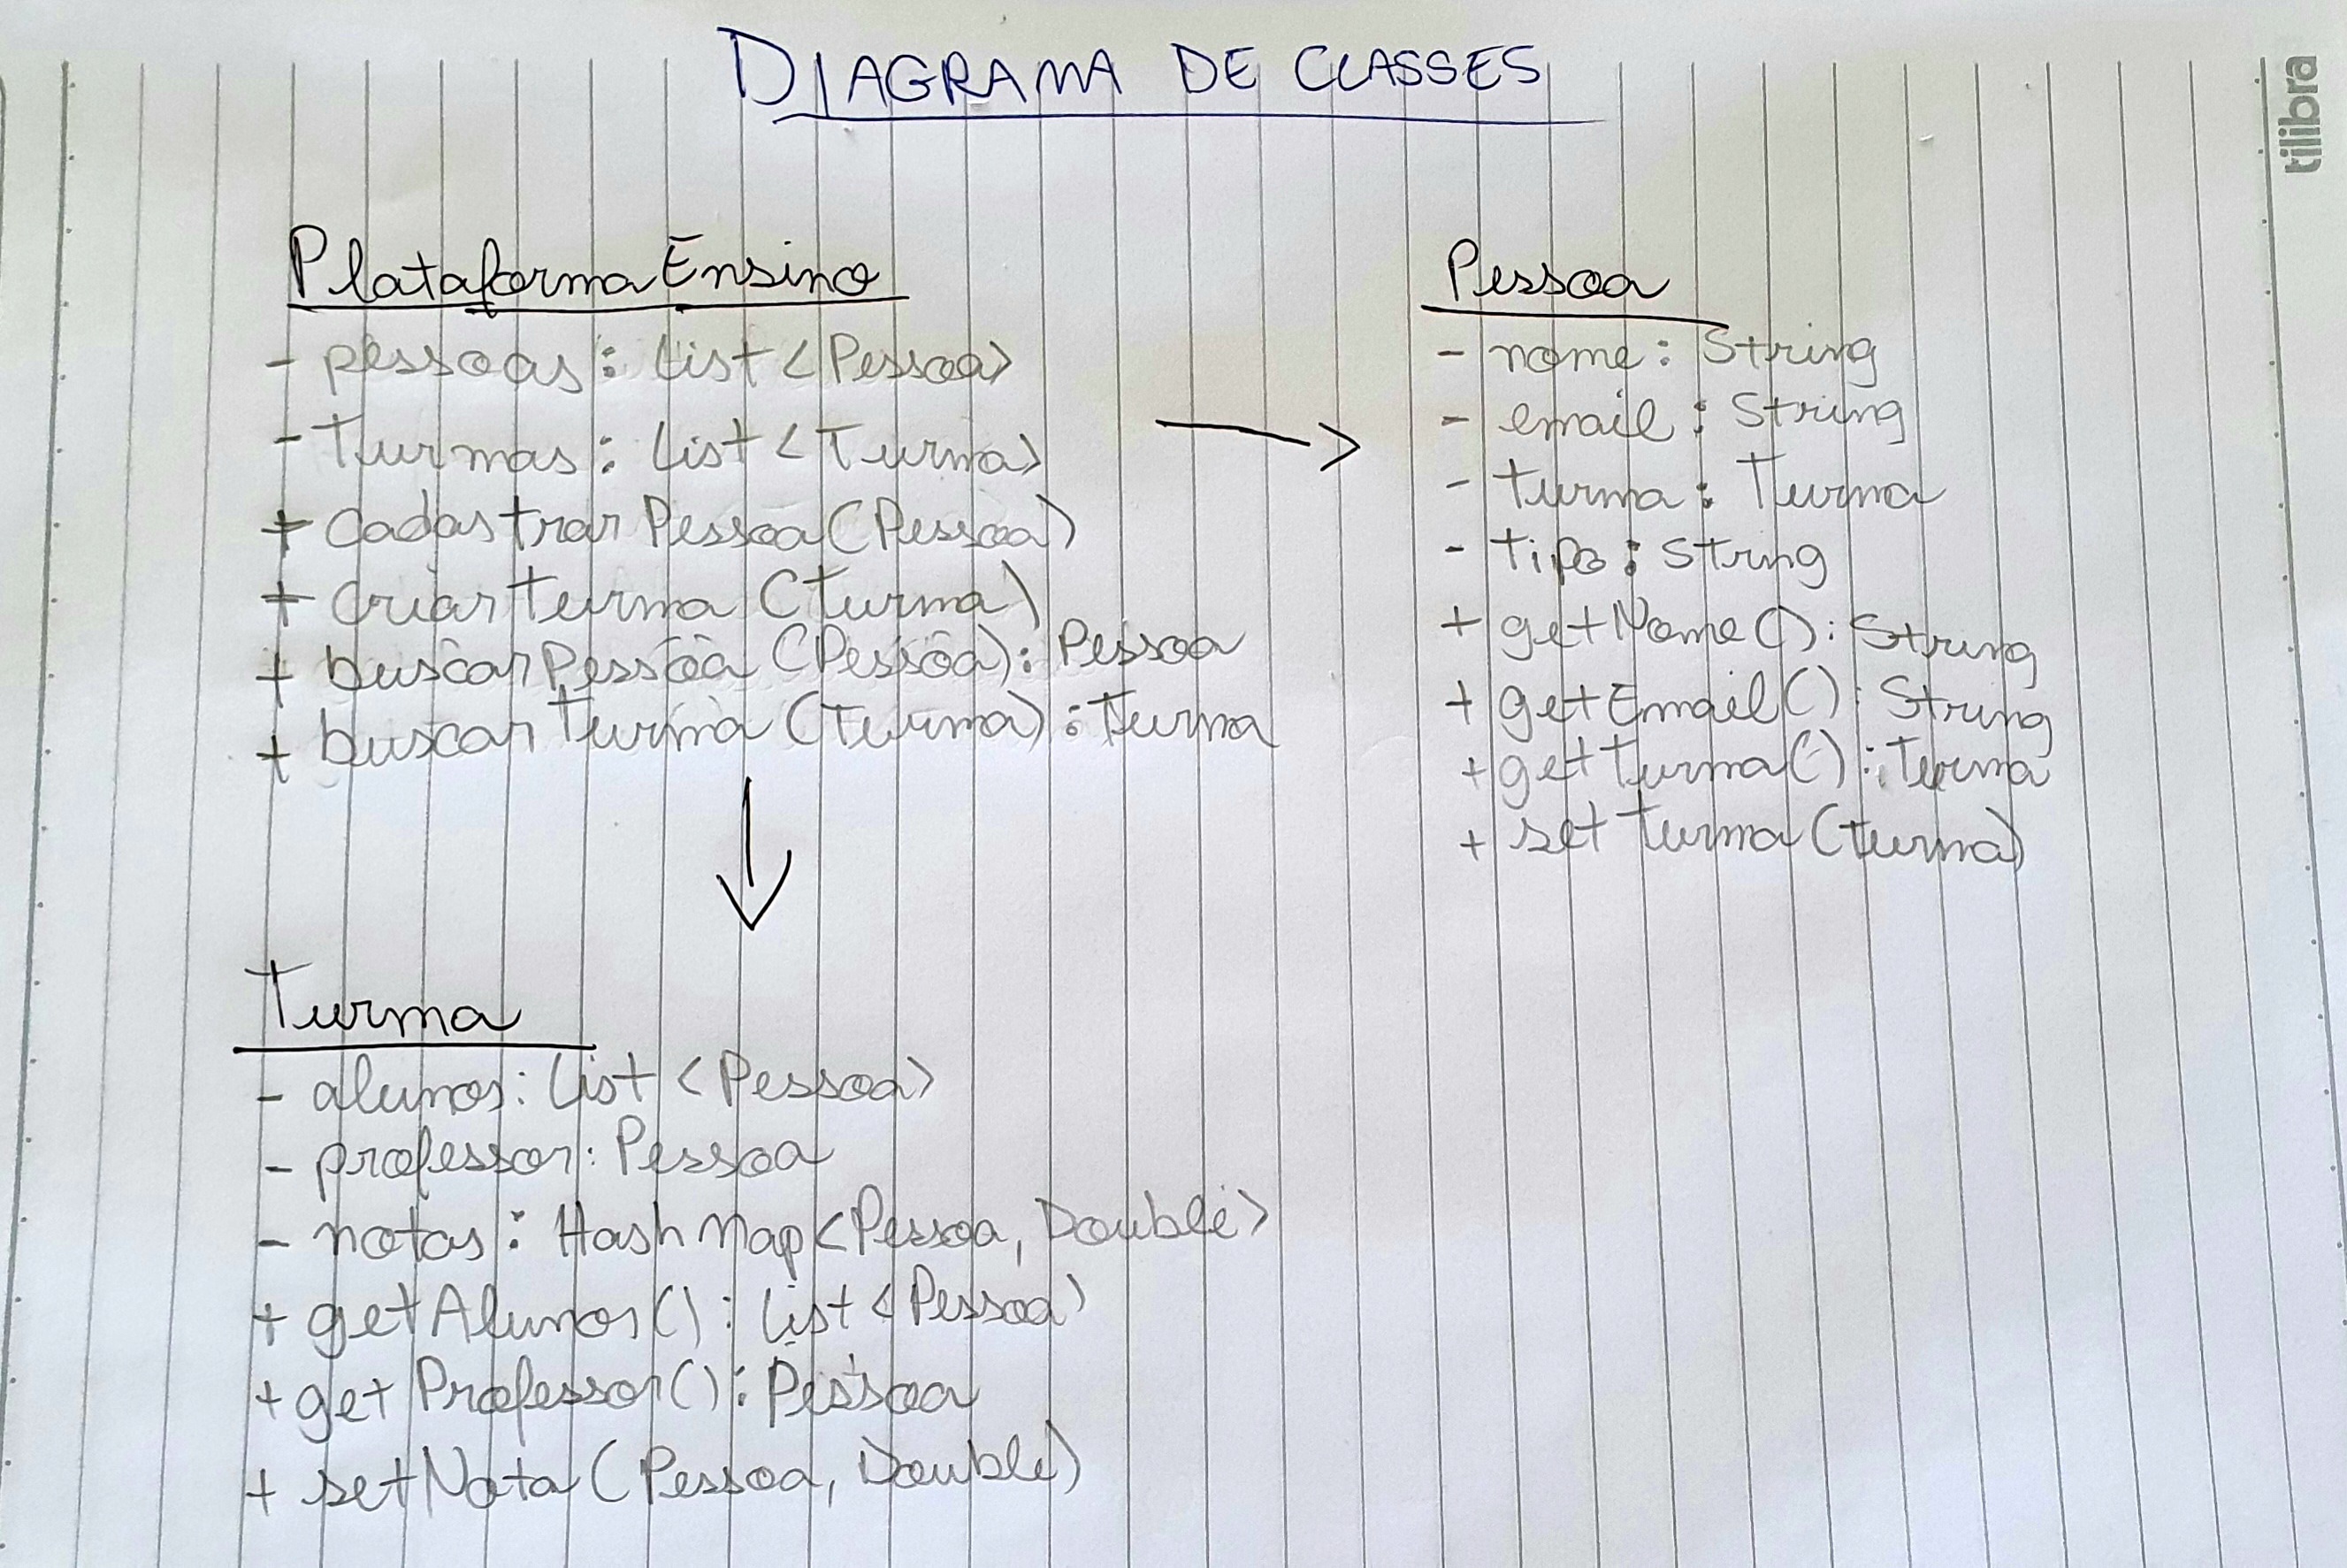 DIAGRAMA DE CLASSES
tilibra
PlataformaEnsino
- pessoas: List <Pessoa>
- Turmas: List <Turma>
+ cadastrarPessoa (Pessoa)
+ criarTurma (Turma)
+ buscarPessoa (Pessoa): Pessoa
+ buscarTurma (Turma): Turma
Pessoa
- nome: String
- email: String
- turma: Turma
- tipo: String
+ getNome(): String
+ getEmail(): String
+ getTurma(): Turma
+ setTurma (Turma)
Turma
- alunos: List <Pessoa>
- professor: Pessoa
- notas: HashMap<Pessoa, Double>
+ getAlunos(): List <Pessoa>
+ getProfessor(): Pessoa
+ setNota (Pessoa, Double)